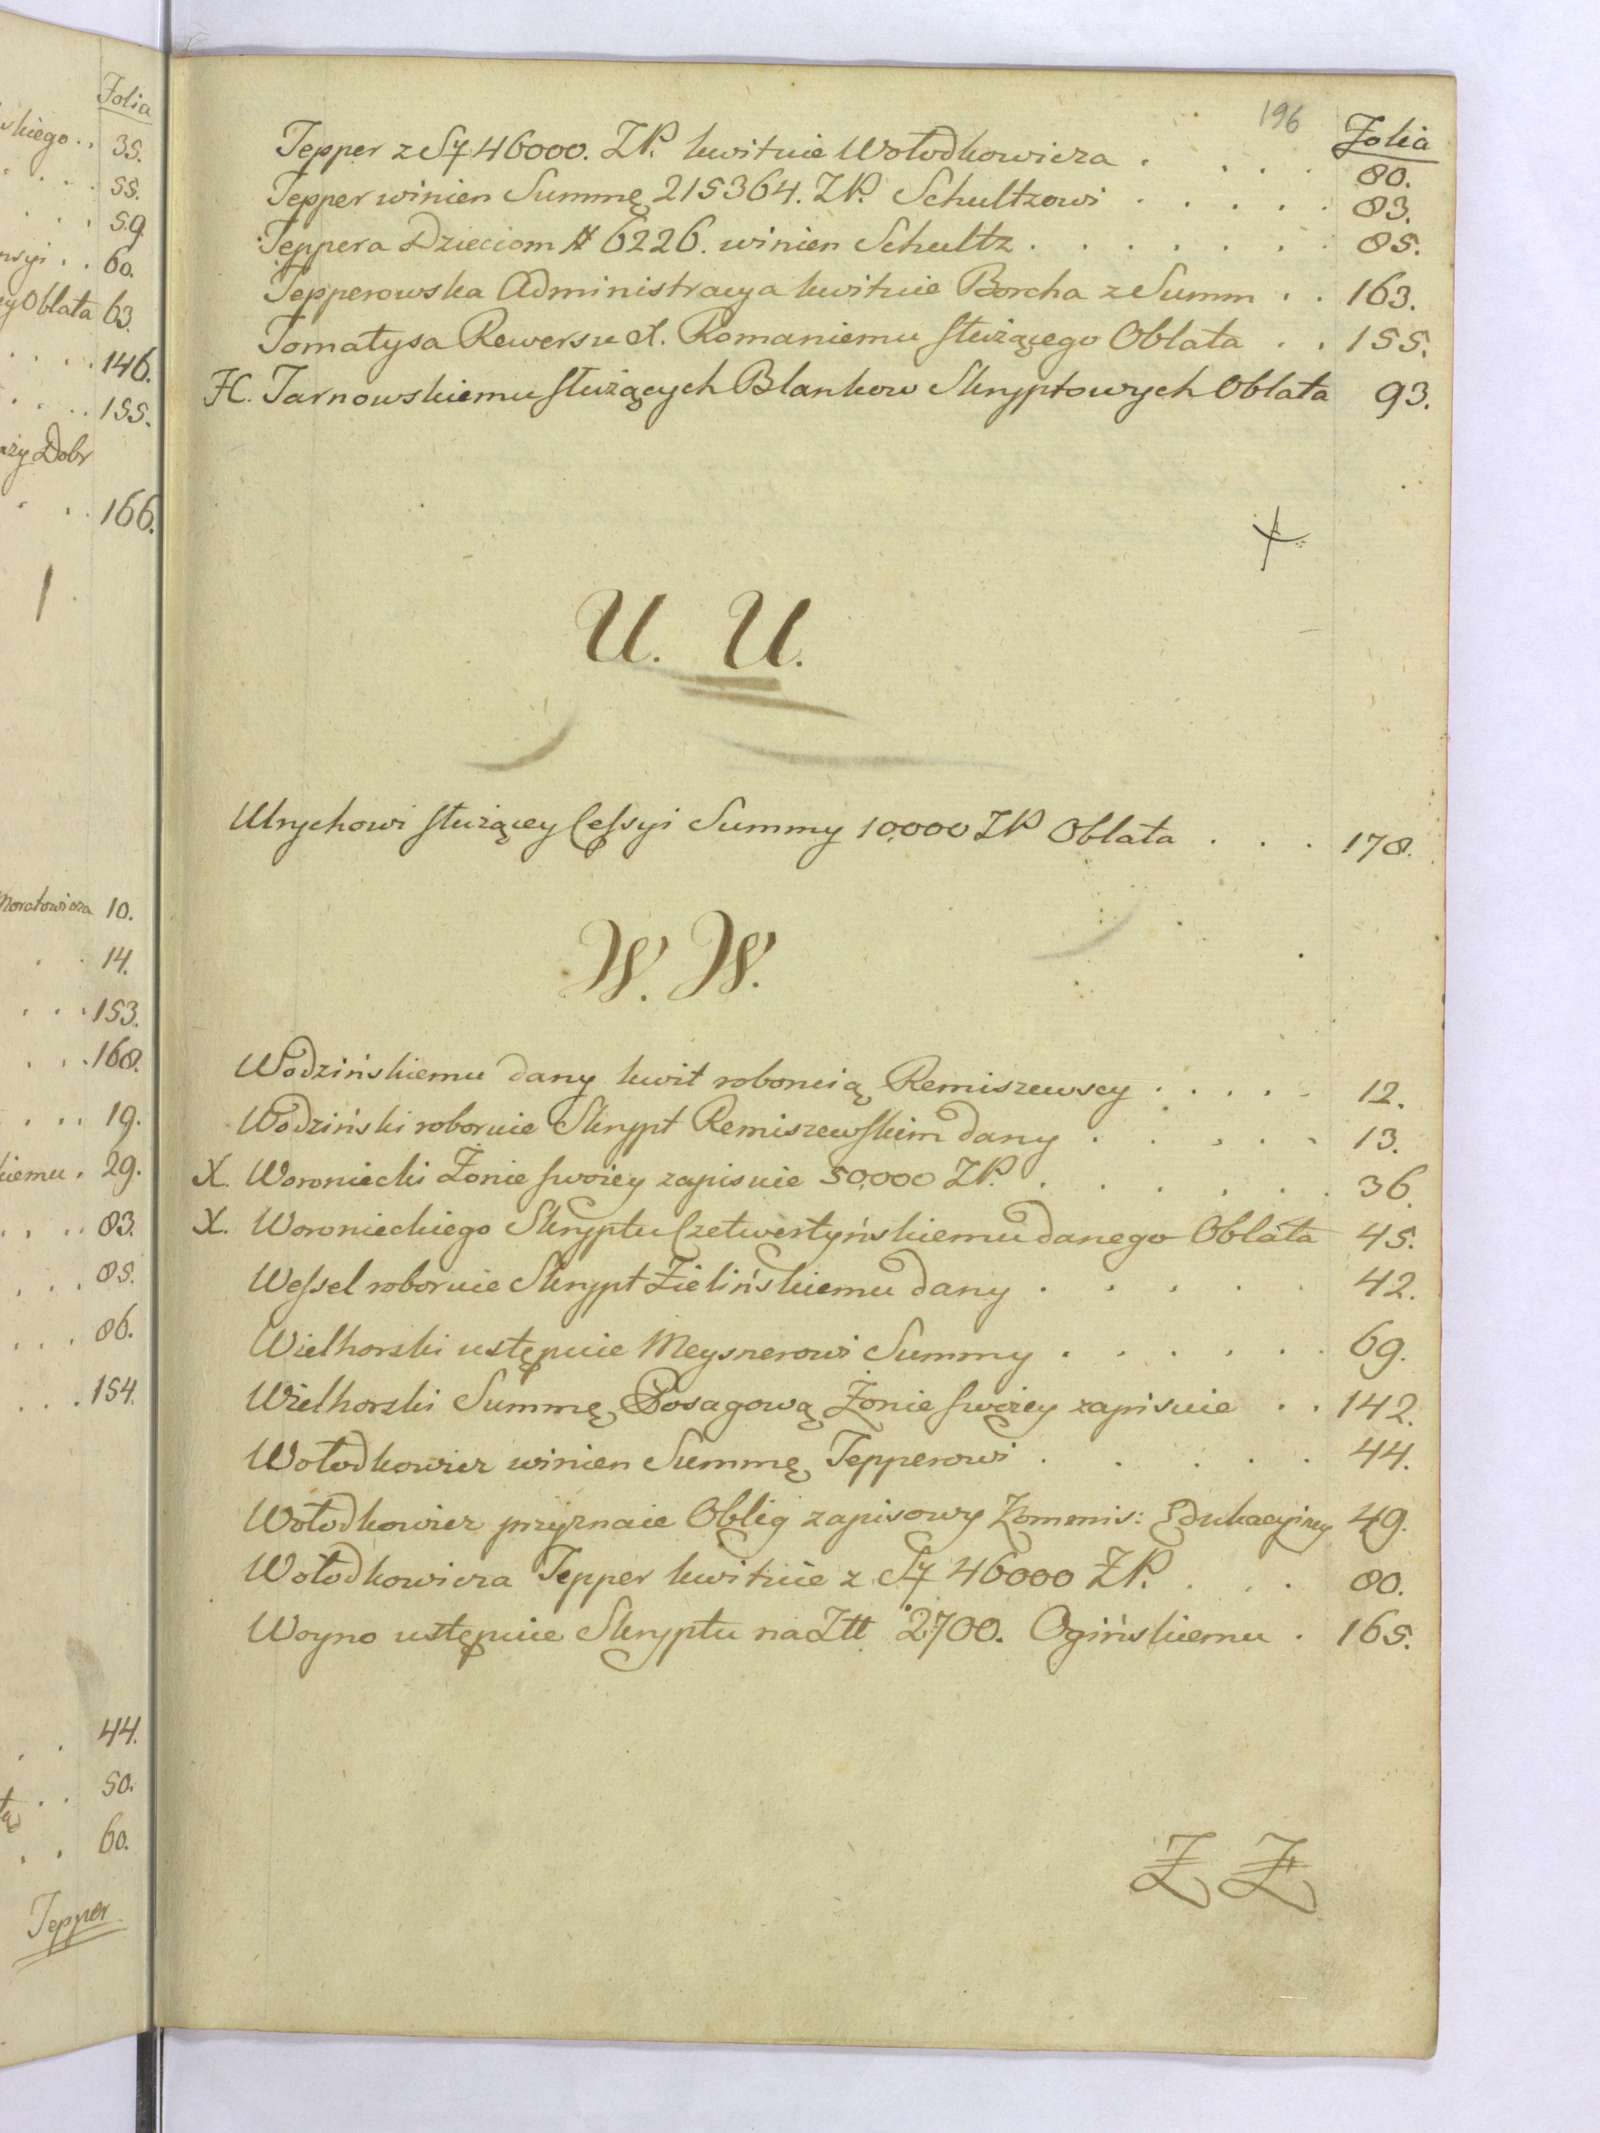 Folia
skiego . . 35.
. . . . 55.
. . . 59
. . 60.
ey Oblata 63.
. . . . 146.
. . . . 155.
Dobr
. . . 166.
10.
. . 14.
. . . 153.
. . . 168.
. . . . 19.
kiemu . 29.
. . . . 83.
. . . 85.
. . . 86.
. . . 154.
. . 44.
. . 50.
. . 60.
Tepper
196
Folia
Tepper z Sy 46000. ZP. kwituie Wołodkowicza . . . . 80.
Tepper winien Summę 215364. ZP. Schultzowi . . . . . 83.
Teppera Dzieciom # 6226. winien Schultz . . . . . . . 85.
Tepperowska Administracya kwituie Borcha z Summ . . 163.
Tomatysa Rewersu X. Romaniemu służącego Oblata . . 155.
H. Tarnowskiemu służących Blankow Skryptowych Oblata 93.
U. U.
Ulrychowi służącey Cessyi Summy 10,000 ZP Oblata . . . 178.
W. W.
Wodzińskiemu dany kwit roboruią Remiszewscy . . . . . 12.
Wodziński roboruie Skrypt Remiszewskim dany . . . . . 13.
X. Woroniecki Żonie swoiey zapisuie 50,000 ZP. . . . . . . 36.
X. Woronieckiego Skryptu Czetwertyńskiemu danego Oblata 45.
Wessel roboruie Skrypt Zielińskiemu dany . . . . . 42.
Wielhorski ustępuie Meysnerowi Summy . . . . . . 69.
Wielhorski Summę Posagową Żonie swoiey zapisuie . . 142.
Wołodkowicz winien Summę Tepperowi . . . . . 44.
Wołodkowicz przyznaie Oblig zapisowy Kommis: Edukacyiney 49.
Wołodkowicza Tepper kwituie z Sy 46000 ZP. . . . 80.
Woyno ustępuie Skryptu na Ztt 2700. Ogińskiemu . 165.
Z Z